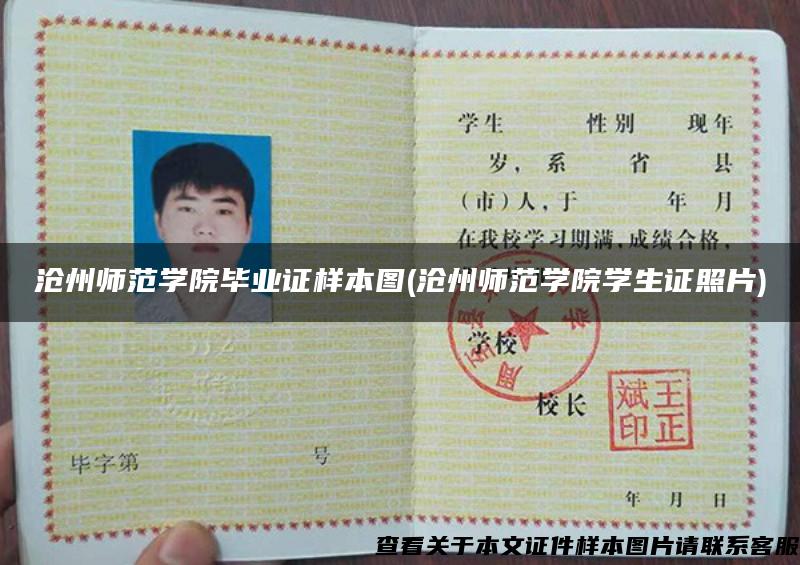 学生 性别 现年
岁，系 省 县
（市）人，于 年 月
在我校学习期满，成绩合格，
沧州师范学院毕业证样本图(沧州师范学院学生证照片)
学校
校长
王正
斌印
毕字第 号
年 月 日
查看关于本文证件样本图片请联系客服